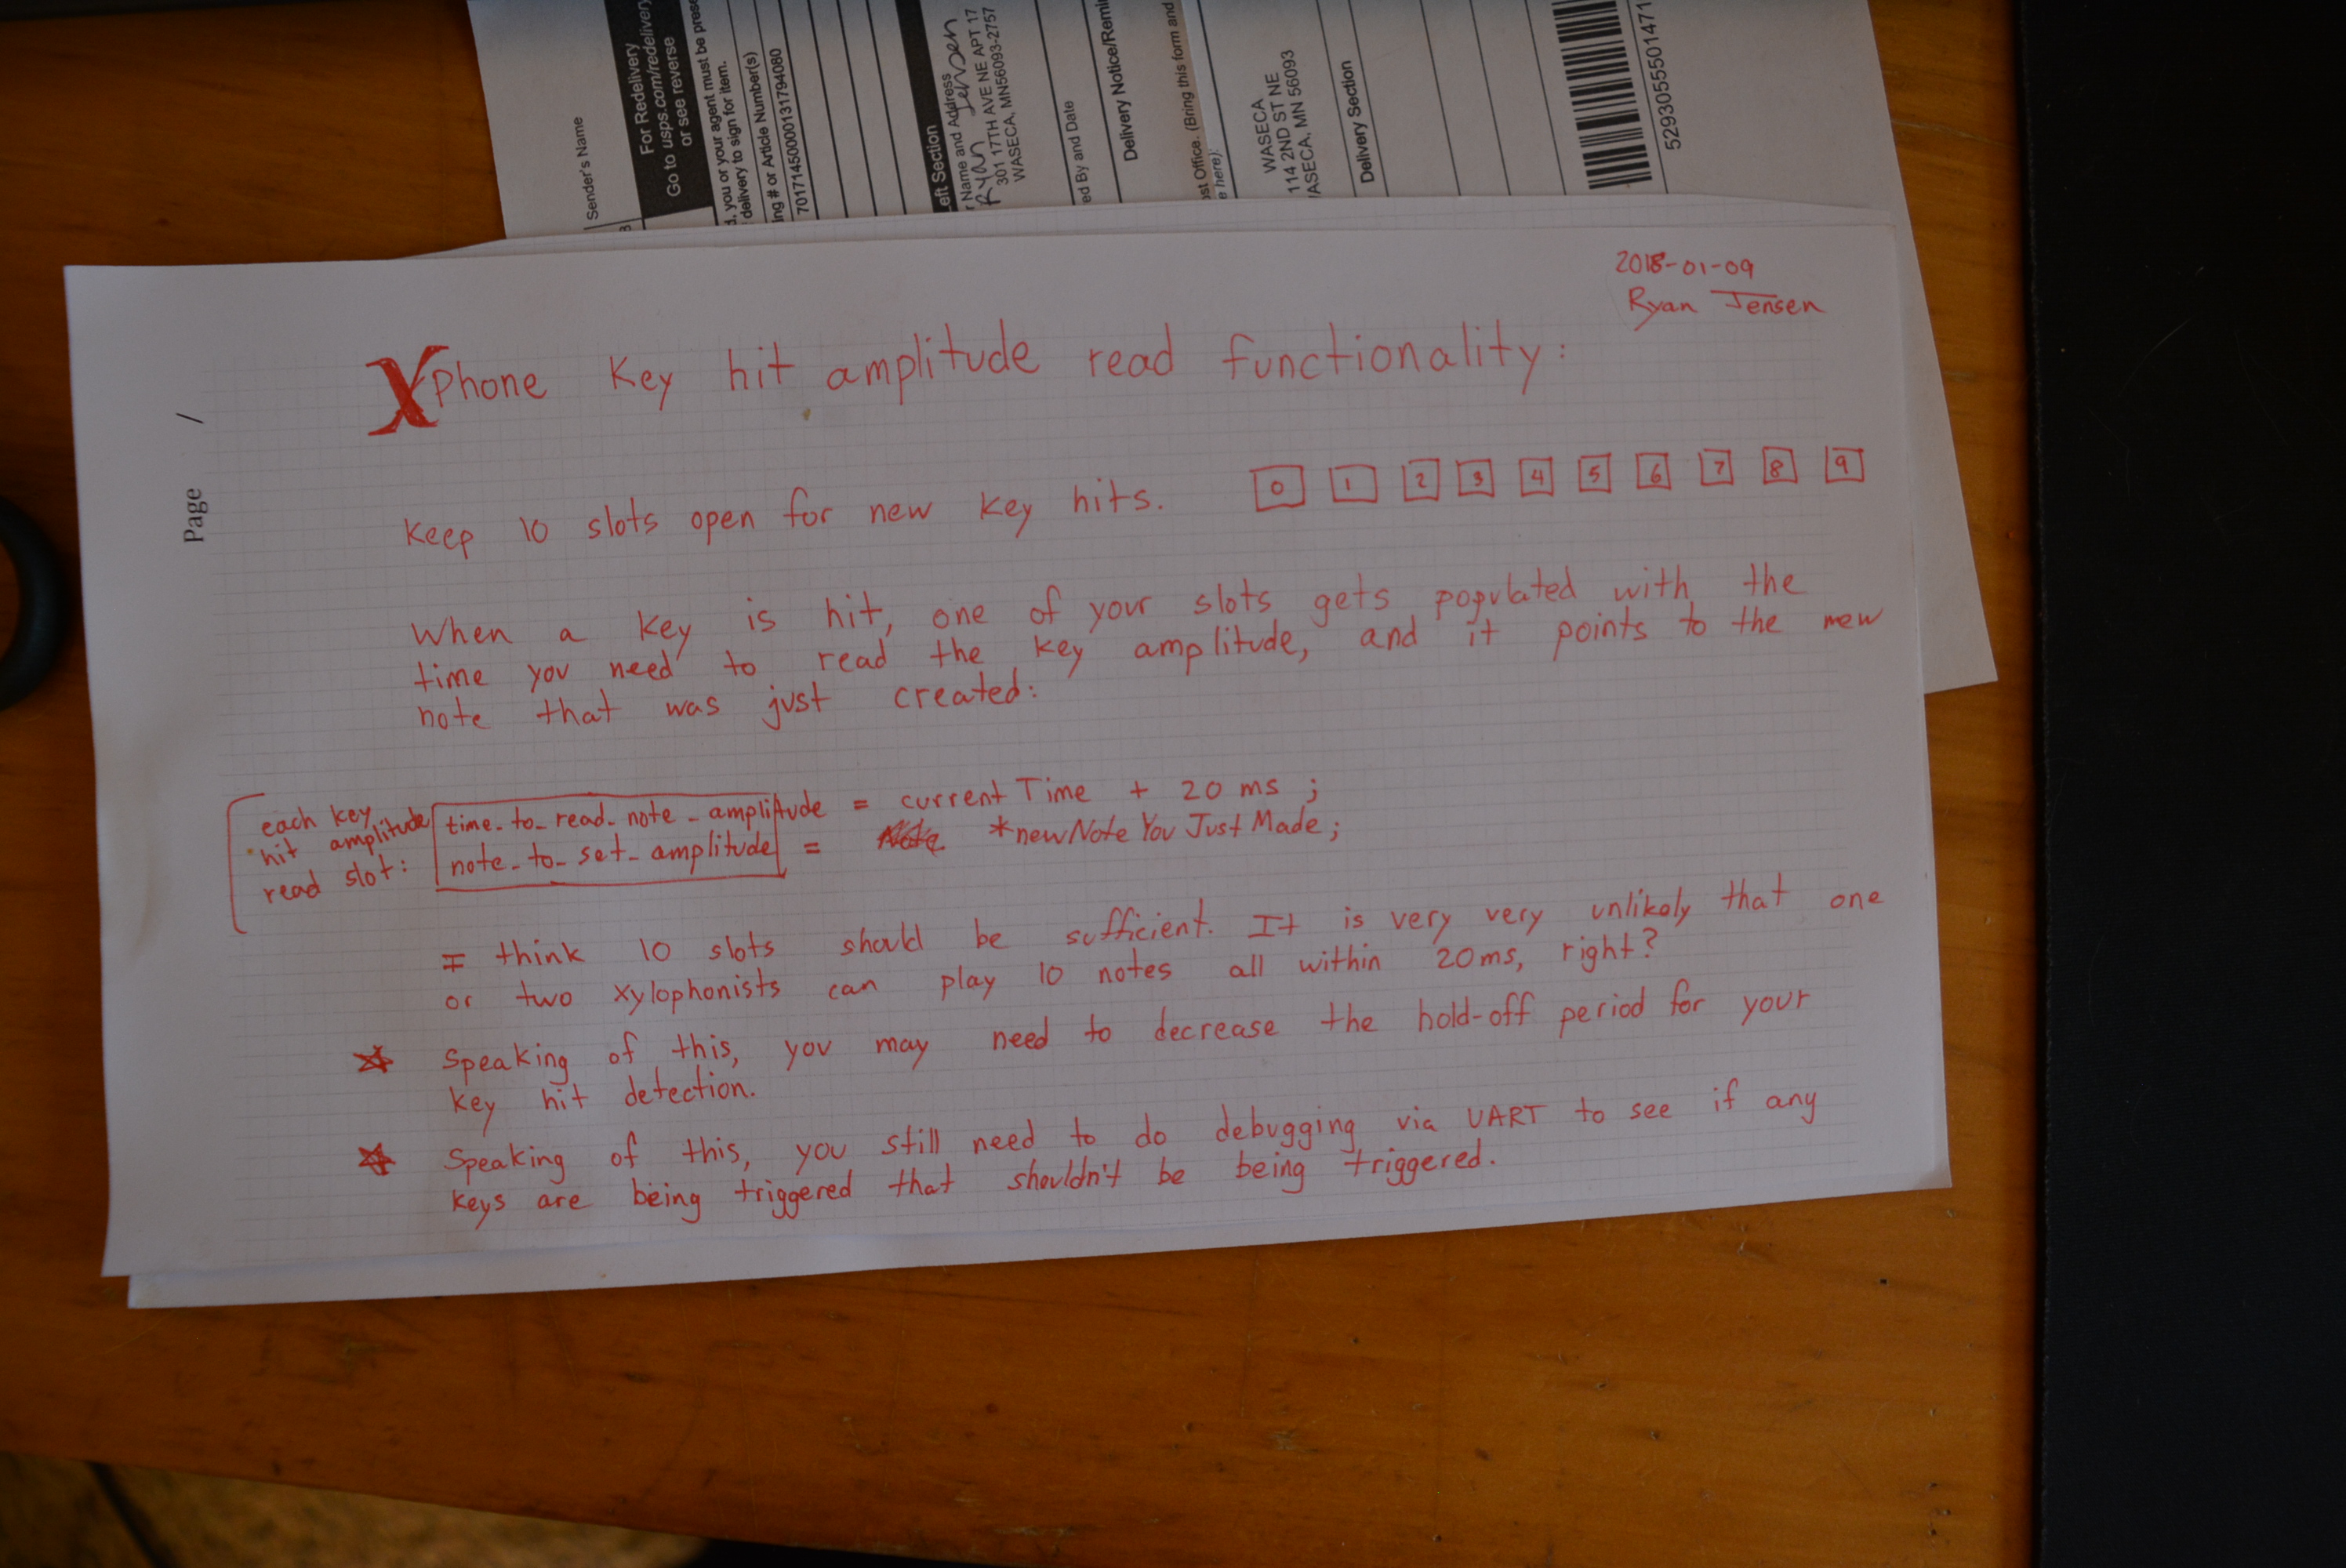 Sender's Name
For Redelivery
Go to usps.com/redelivery
or see reverse
you or your agent must be
delivery to sign for item.
# or Article Number(s)
70171450000131794080
Section
Name and Address
Ryan Jensen
301 17TH AVE NE APT 17
WASECA, MN56093-2757
By and Date
Delivery Notice/
Office. (Bring this form and
here):
WASECA
114 2ND ST NE
WASECA, MN 56093
Delivery Section
5293055501471
2018-01-09
Ryan Jensen
Page /
XPhone Key hit amplitude read functionality:
Keep 10 slots open for new key hits. 0 1 2 3 4 5 6 7 8 9
When a key is hit, one of your slots gets populated with the
time you need to read the key amplitude, and it points to the new
note that was just created:
each key
hit amplitude
read slot:
time_to_read_note_amplitude = currentTime + 20 ms ;
note_to_set_amplitude = *newNoteYouJustMade;
I think 10 slots should be sufficient. It is very very unlikely that one
or two xylophonists can play 10 notes all within 20ms, right?
Speaking of this, you may need to decrease the hold-off period for your
key hit detection.
Speaking of this, you still need to do debugging via UART to see if any
keys are being triggered that shouldn't be being triggered.